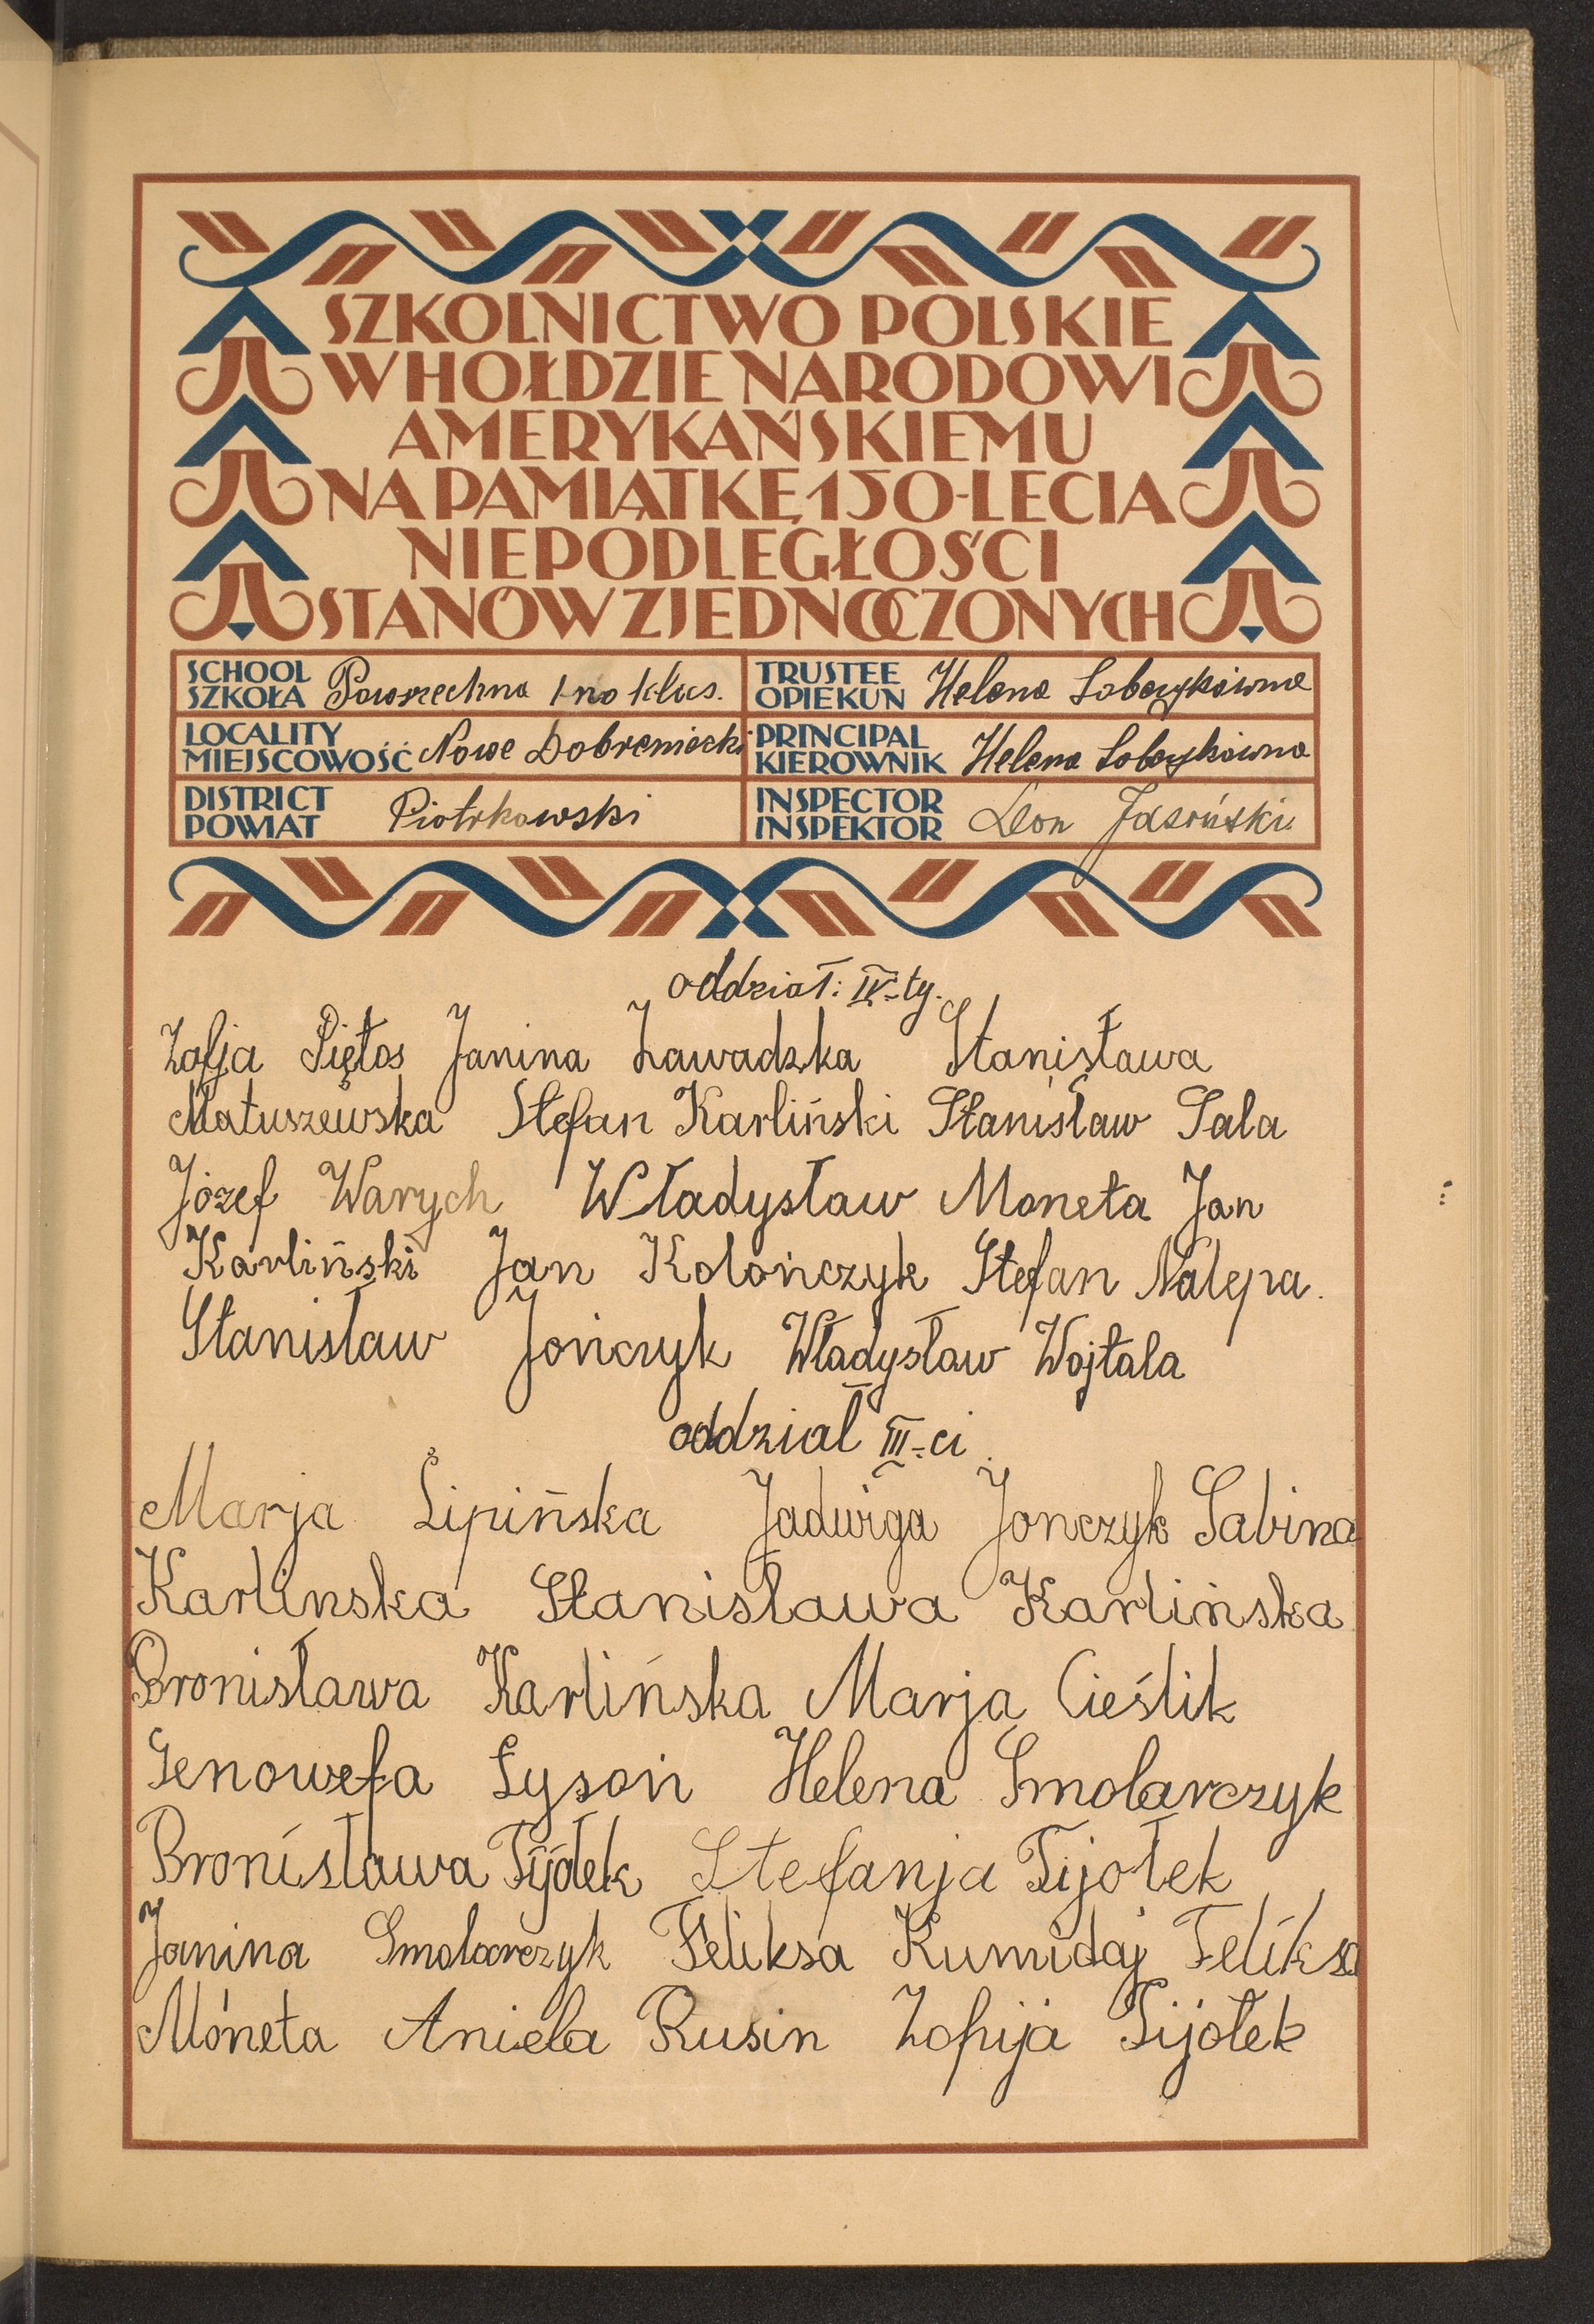 SZKOLNICTWO POLSKIE
W HOŁDZIE NARODOWI
AMERYKAŃSKIEMU
NA PAMIĄTKĘ 150-LECIA
NIEPODLEGŁOŚCI
STANÓW ZJEDNOCZONYCH
SCHOOL
SZKOŁA Powszechna 1-no klas.
TRUSTEE
OPIEKUN Helena
LOCALITY
MIEJSCOWOŚĆ Nowe Dobreniecki
PRINCIPAL
KIEROWNIK Helena
DISTRICT
POWIAT Piotrkowski
INSPECTOR
INSPEKTOR Leon Jasoński
oddział: IV-ty.
Zofja Piętos Janina Zawadzka Stanisława
Matuszewska Stefan Karliński Stanisław Sala
Józef Warych Władysław Moneta Jan
Karliński Jan Kolończyk Stefan Nalepa.
Stanisław Jończyk Władysław Wojtala
oddział III-ci.
Marja Lipińska Jadwiga Jonczyk Sabina
Karlinska Stanisława Karlińska
Bronisława Karlińska Marja Cieślik
Genowefa Łysoń Helena Smolarczyk
Bronisława Fijołek Stefanja Fijołek
Janina Smolarczyk Feliksa Kumidaj Feliksa
Móneta Aniela Rusin Zofija Fijołek